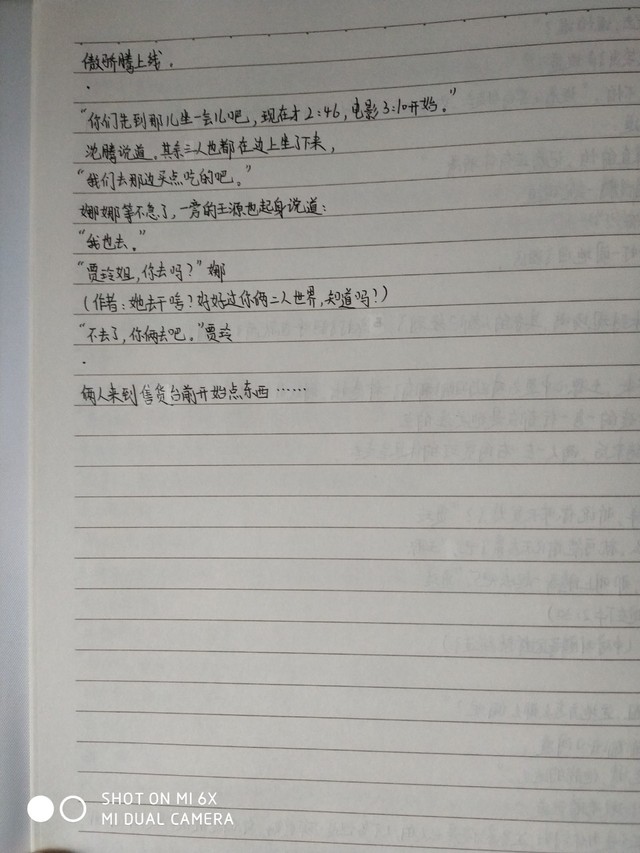 傲骄腾上线。
.
“你们先到那儿坐一会儿吧，现在才2:46，电影3:10开始。”
沈腾说道，其余三人也都在边上坐了下来，
“我们去那边买点吃的吧。”
娜娜等不急了，一旁的王源也起身说道：
“我也去。”
“贾玲姐，你去吗？”娜
（作者：她去干啥？好好过你俩二人世界，知道吗？）
“不去了，你俩去吧。”贾玲
.
俩人来到售货台前开始点东西……
SHOT ON MI 6X
MI DUAL CAMERA